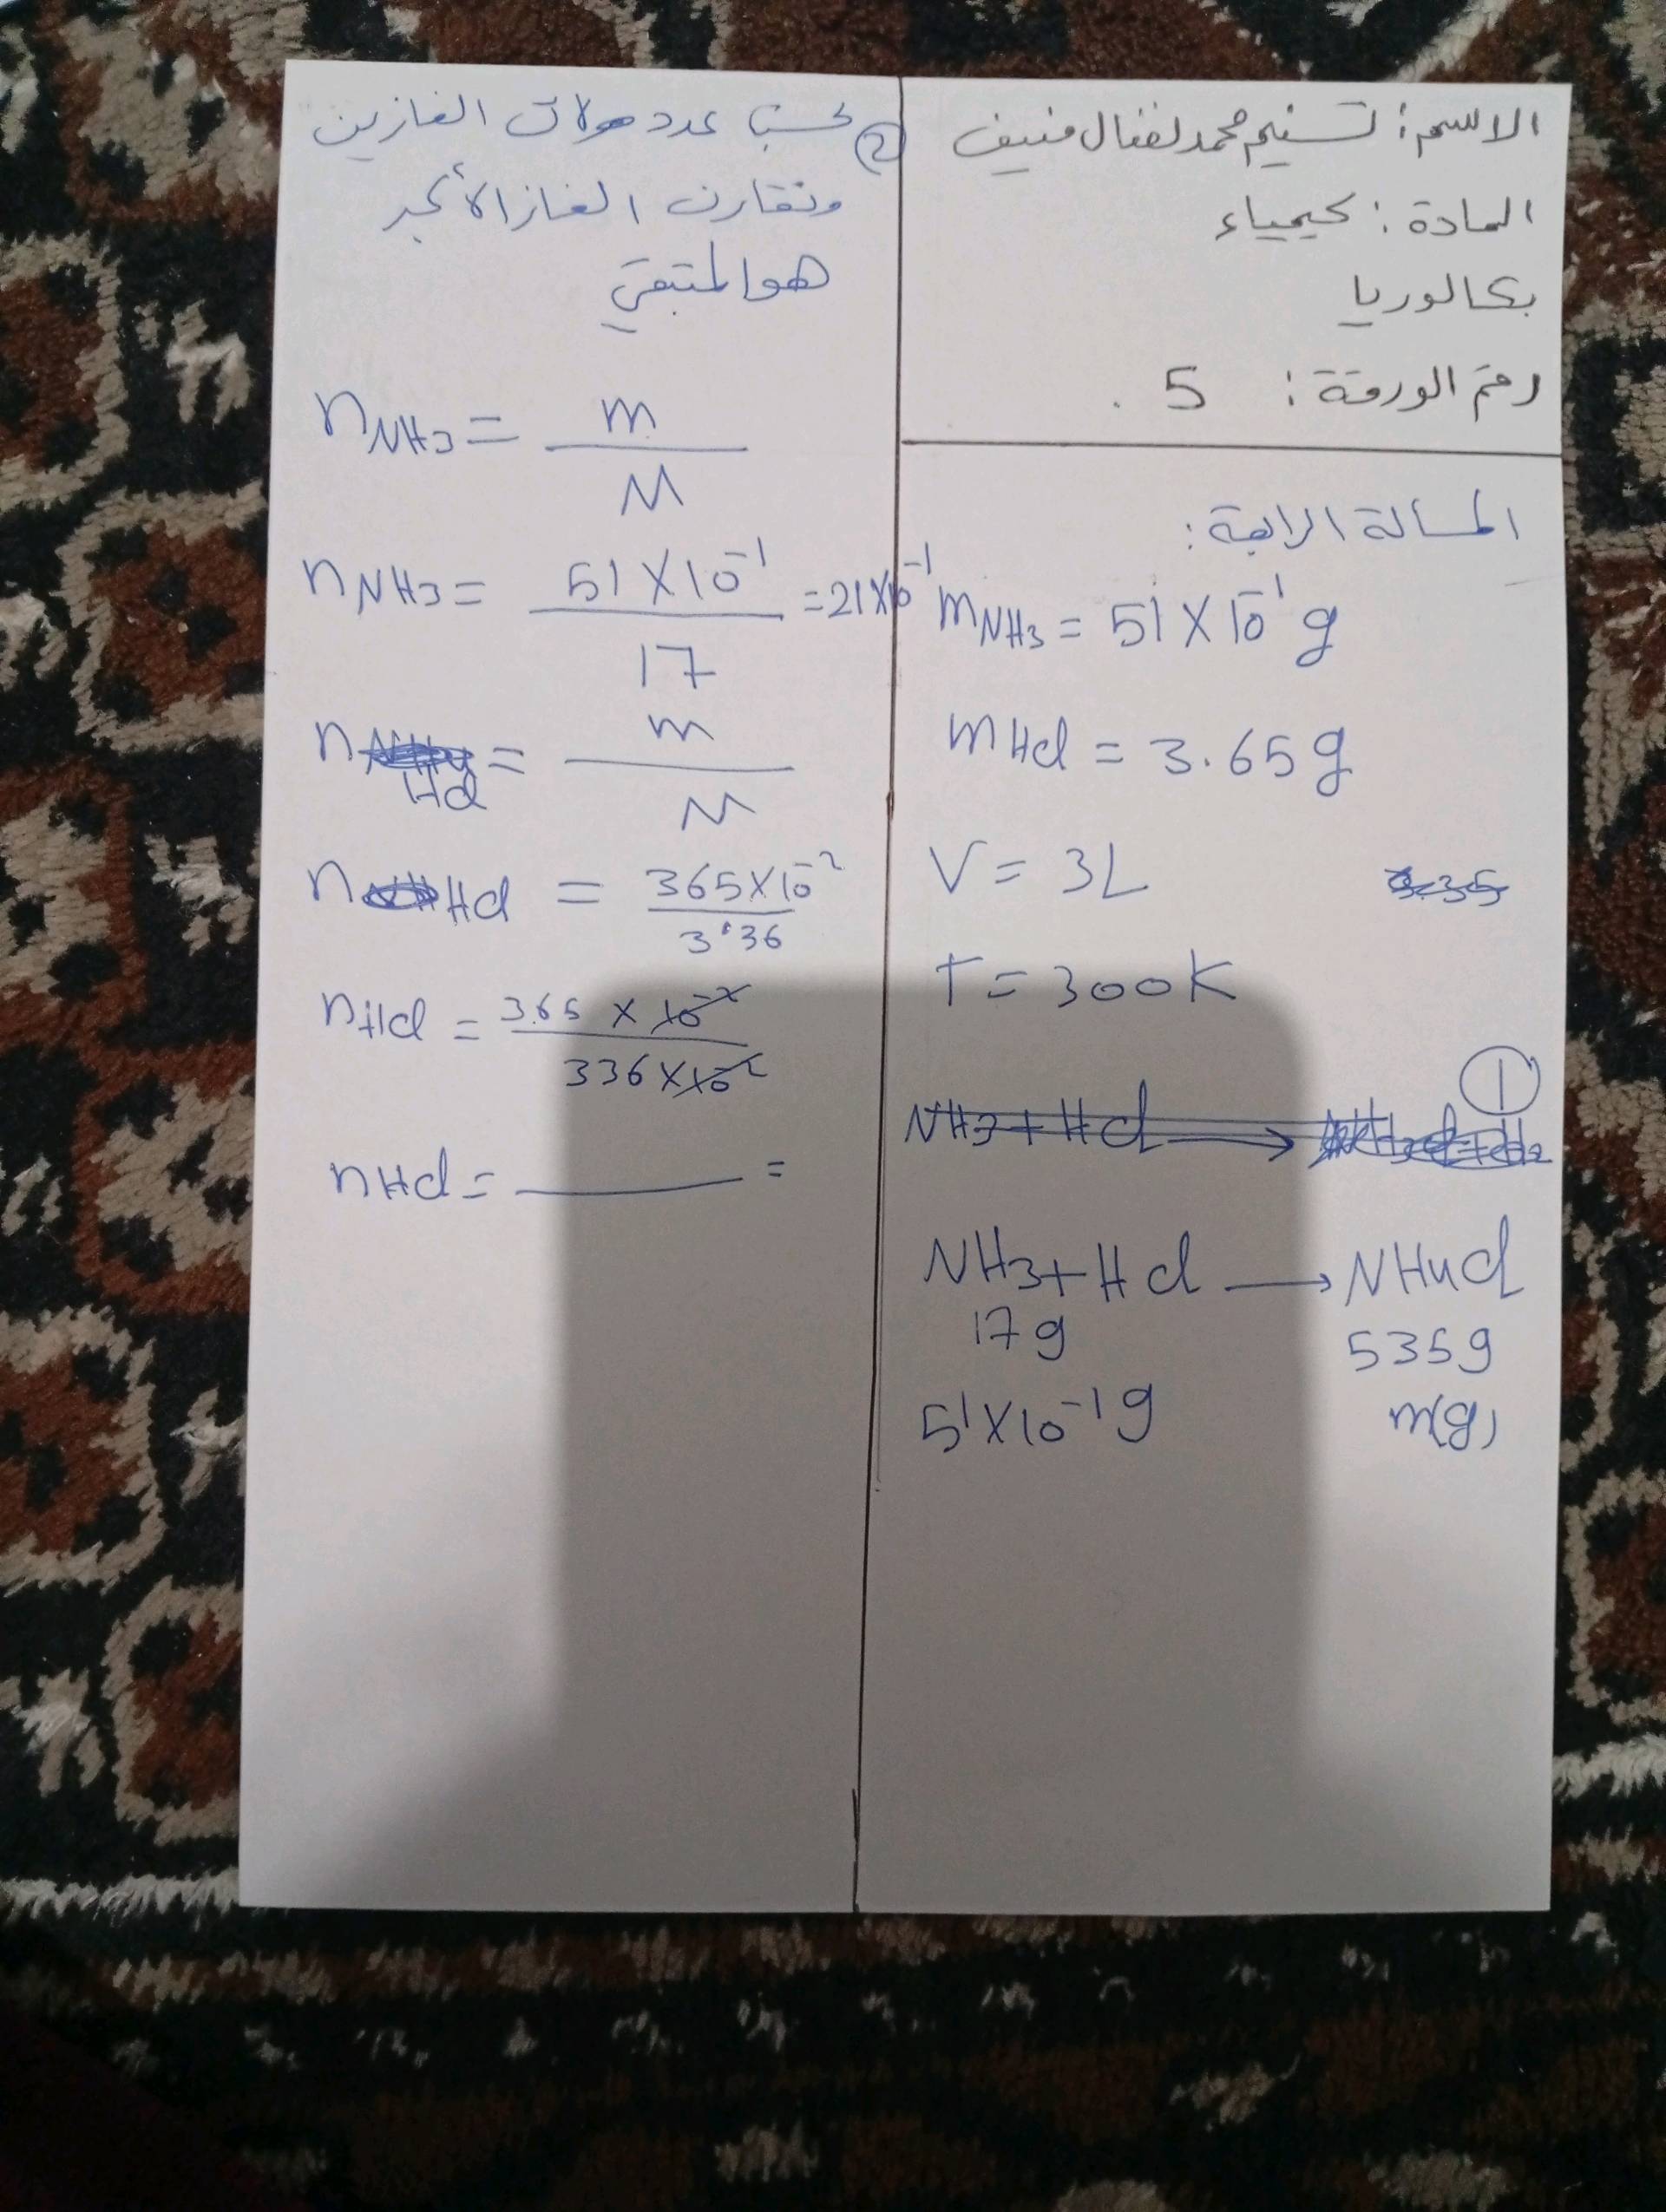 الاسم: تسنيم محمد نضال منيف
المادة: كيمياء
بكالوريا
رقم الورقة: 5
المسألة الرابعة:
mNH3 = 51 X 10^-1 g
mHcl = 3.65 g
V = 3L
T = 300K
①
NH3 + Hcl → NH4cl
17g 535g
51X10^-1 g m(g)
② نحسب عدد مولات الغازين
ونقارن الغاز الأكبر
هو المتبقي
nNH3 = m / M
nNH3 = 51 X 10^-1 / 17 = 21X10^-1
nHcl = m / M
nHcl = 365X10^-2 / 3.36
nHcl = 3.65 X 10^-2 / 336 X 10^-2
nHcl = ــــــ =